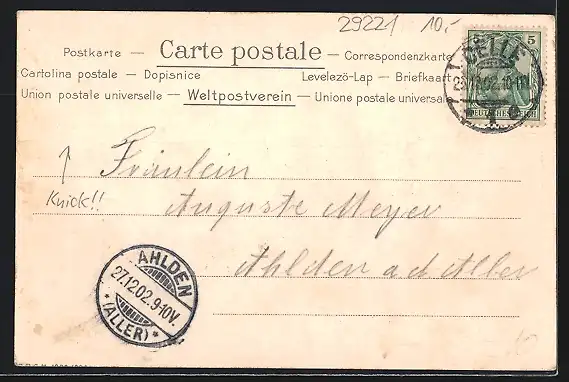 29221 10,-
Postkarte — Carte postale — Correspondenzkarte
Cartolina postale — Dopisnice Levelezö-Lap — Briefkaart
Union postale universelle — Weltpostverein — Unione postale universale
5
CELLE
DEUTSCHES REICH
Fräulein
Knick!!
Auguste Meyer
Ahlden a d Aller
AHLDEN
27.12.02.9-10V.
*(ALLER)*